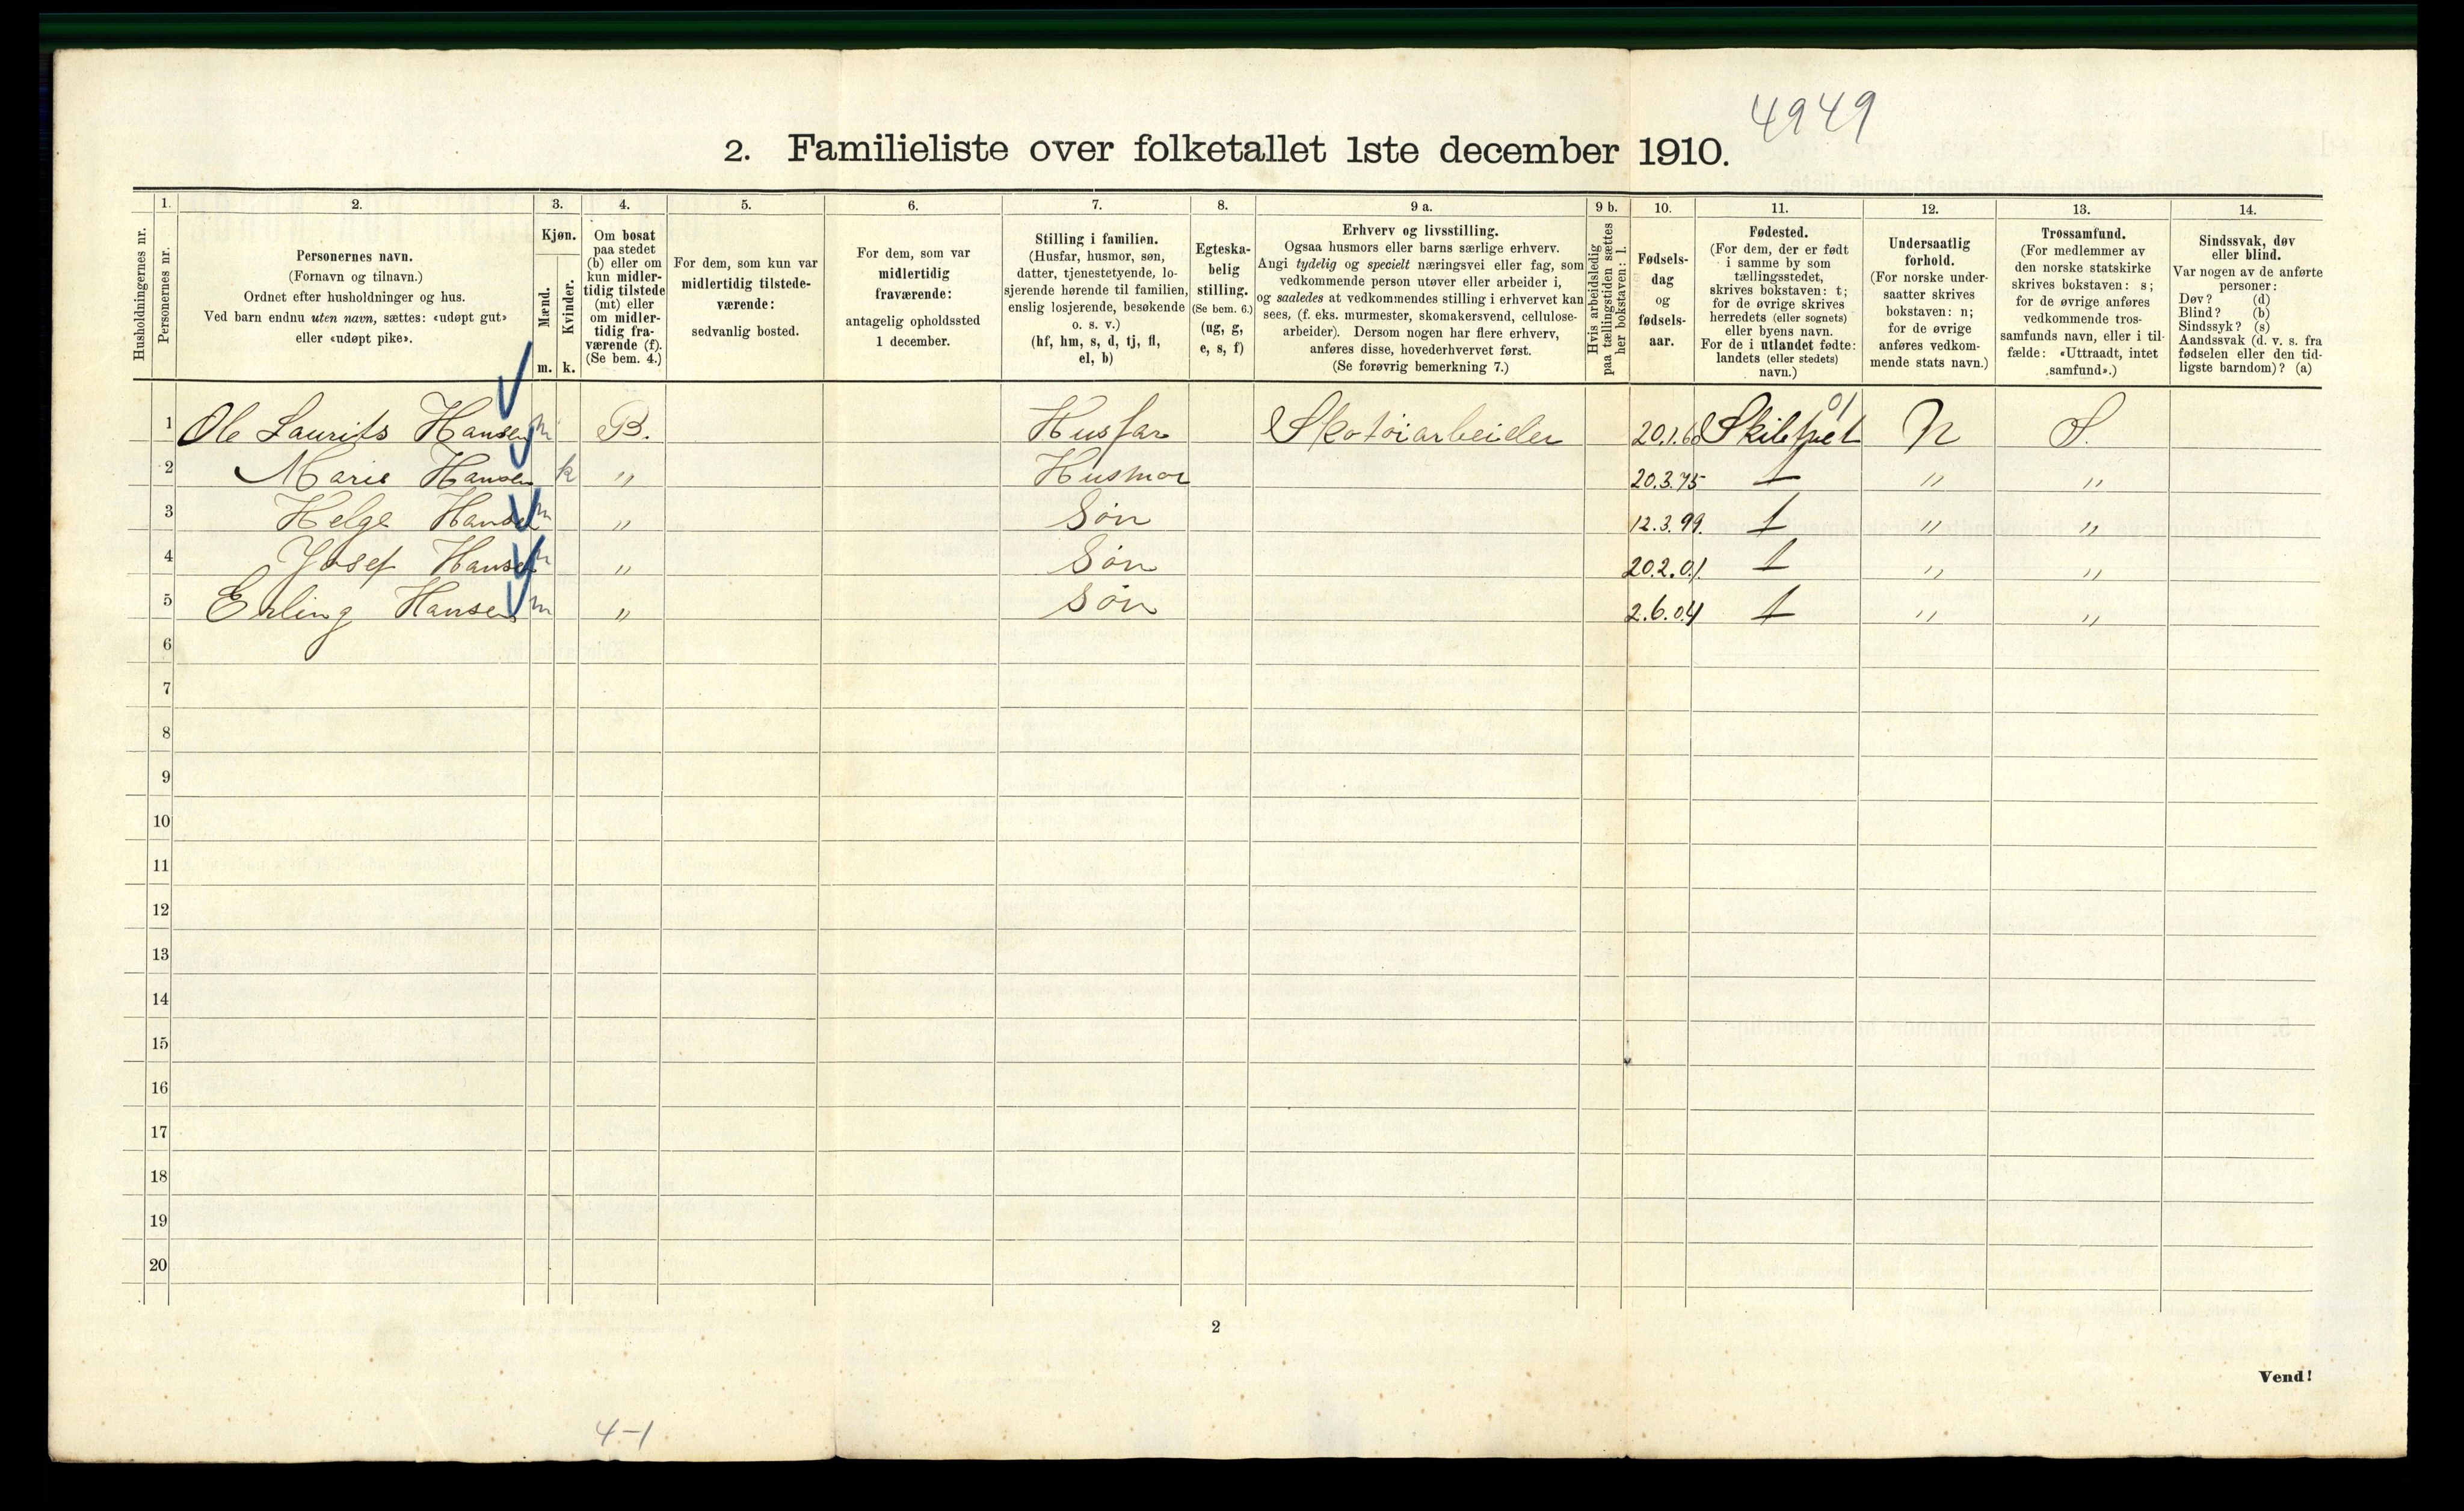 4949
2. Familieliste over folketallet 1ste december 1910.
Husholdningernes nr.
1.
Personernes nr.
2.
Personernes navn.
(Fornavn og tilnavn.)
Ordnet efter husholdninger og hus.
Ved barn endnu uten navn, sættes: «udøpt gut»
eller «udøpt pike».
3.
Kjøn.
Mænd.
m.
Kvinder.
k.
4.
Om bosat
paa stedet
(b) eller om
kun midler-
tidig tilstede
(mt) eller
om midler-
tidig fra-
værende (f).
(Se bem. 4.)
5.
For dem, som kun var
midlertidig tilstede-
værende:
sedvanlig bosted.
6.
For dem, som var
midlertidig
fraværende:
antagelig opholdssted
1 december.
7.
Stilling i familien.
(Husfar, husmor, søn,
datter, tjenestetyende, lo-
sjerende hørende til familien,
enslig losjerende, besøkende
o. s. v.)
(hf, hm, s, d, tj, fl,
el, b)
8.
Egteska-
belig
stilling.
(Se bem. 6.)
(ug, g,
e, s, f)
9 a.
Erhverv og livsstilling.
Ogsaa husmors eller barns særlige erhverv.
Angi tydelig og specielt næringsvei eller fag, som
vedkommende person utøver eller arbeider i,
og saaledes at vedkommendes stilling i erhvervet kan
sees, (f. eks. murmester, skomakersvend, cellulose-
arbeider). Dersom nogen har flere erhverv,
anføres disse, hovederhvervet først.
(Se forøvrig bemerkning 7.)
9 b.
Hvis arbeidsledig
paa tællingstiden sættes
her bokstaven: l.
10.
Fødsels-
dag
og
fødsels-
aar.
11.
Fødested.
(For dem, der er født
i samme by som
tællingsstedet,
skrives bokstaven: t;
for de øvrige skrives
herredets (eller sognets)
eller byens navn.
For de i utlandet fødte:
landets (eller stedets)
navn.)
12.
Undersaatlig
forhold.
(For norske under-
saatter skrives
bokstaven: n;
for de øvrige
anføres vedkom-
mende stats navn.)
13.
Trossamfund.
(For medlemmer av
den norske statskirke
skrives bokstaven: s;
for de øvrige anføres
vedkommende tros-
samfunds navn, eller i til-
fælde: «Uttraadt, intet
samfund».)
14.
Sindssvak, døv
eller blind.
Var nogen av de anførte
personer:
Døv? (d)
Blind? (b)
Sindssyk? (s)
Aandssvak (d. v. s. fra
fødselen eller den tid-
ligste barndom)? (a)
01
1 Ole Laurits Hansen m B. Husfar Skotøiarbeider 20.1.60 N S.
2 Marie Hansen k " Husmor 20.3.75 t " "
3 Helge Hansen m " Søn 12.3.99. t " "
4 Josef Hansen m " Søn 20.2.01. t " "
5 Erling Hansen m " Søn 2.6.04 t " "
6
7
8
9
10
11
12
13
14
15
16
17
18
19
20
2
Vend!
4-1